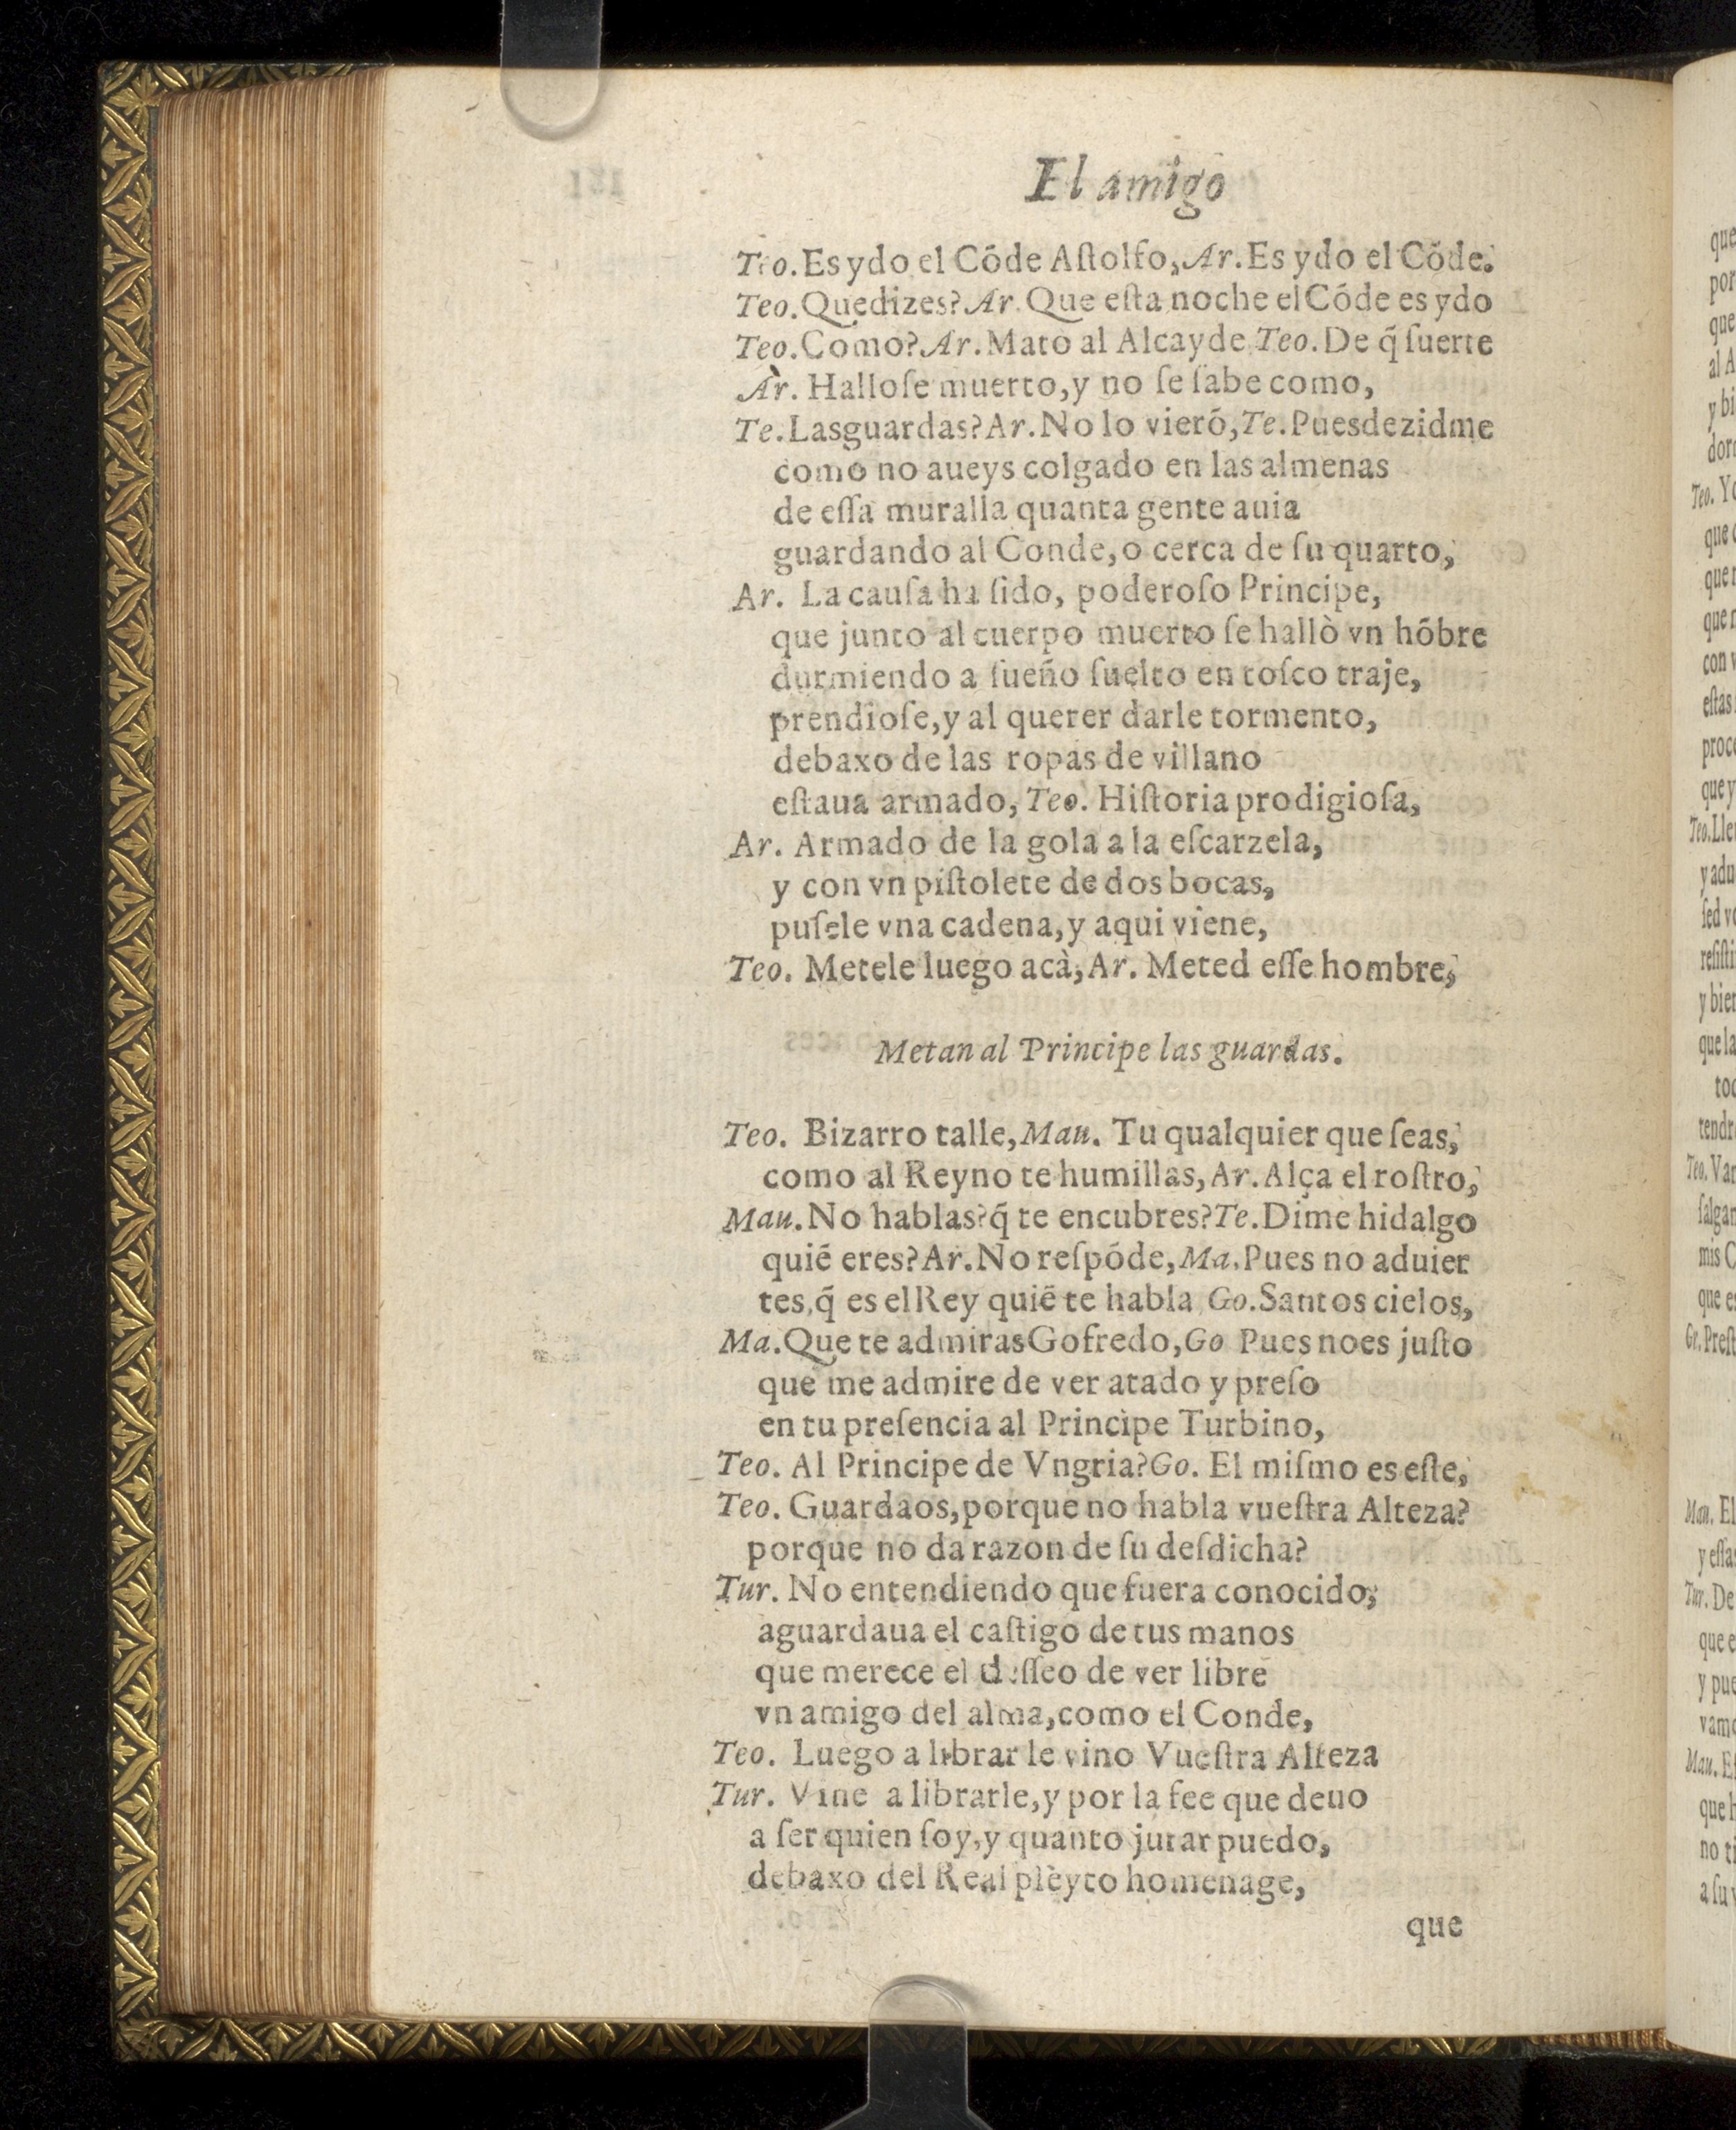 El amigo
Teo. Es ydo el Cõde Aſtolfo, Ar. Es ydo el Cõde.
Teo. Que dizes? Ar. Que eſta noche el Cõde es ydo
Teo. Como? Ar. Mato al Alcayde Teo. De q̃ ſuerte
Ar. Halloſe muerto, y no ſe ſabe como,
Te. Las guardas? Ar. No lo vierõ, Te. Pues dezidme
como no aueys colgado en las almenas
de eſſa muralla quanta gente auia
guardando al Conde, o cerca de ſu quarto,
Ar. La cauſa ha ſido, poderoſo Principe,
que junto al cuerpo muerto ſe hallò vn hõbre
durmiendo a ſueño ſuelto en toſco traje,
prendioſe, y al querer darle tormento,
debaxo de las ropas de villano
eſtaua armado, Teo. Hiſtoria prodigioſa,
Ar. Armado de la gola a la eſcarzela,
y con vn piſtolete de dos bocas,
puſele vna cadena, y aqui viene,
Teo. Metele luego acà, Ar. Meted eſſe hombre,
Metan al Principe las guardas.
Teo. Bizarro talle, Mau. Tu qualquier que ſeas,
como al Reyno te humillas, Ar. Alça el roſtro,
Mau. No hablas? q̃ te encubres? Te. Dime hidalgo
quiẽ eres? Ar. No reſpõde, Ma. Pues no aduier
tes, q̃ es el Rey quiẽ te habla Go. Santos cielos,
Ma. Que te admiras Gofredo, Go Pues no es juſto
que me admire de ver atado y preſo
en tu preſencia al Principe Turbino,
Teo. Al Principe de Vngria? Go. El miſmo es eſte,
Teo. Guardaos, porque no habla vueſtra Alteza?
porque no da razon de ſu deſdicha?
Tur. No entendiendo que fuera conocido,
aguardaua el caſtigo de tus manos
que merece el deſſeo de ver libre
vn amigo del alma, como el Conde,
Teo. Luego a librar le vino Vueſtra Alteza
Tur. Vine a librarle, y por la fee que deuo
a ſer quien ſoy, y quanto jurar puedo,
debaxo del Real plèyto homenage,
que